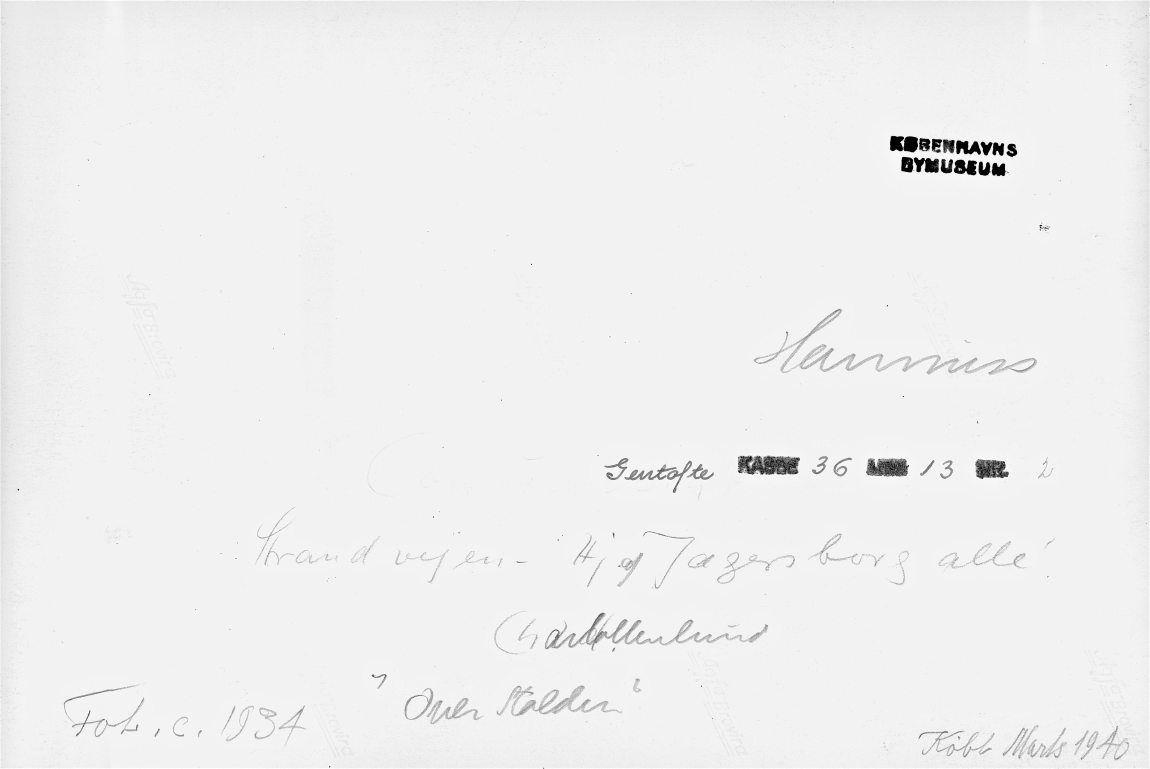 KØBENHAVNS
BYMUSEUM
Gentofte KASSE 36 LÆG 13 NR. 2
Strandvejen - Hj af Jagersborg allé
Charlottenlund
"Over Stalden"
Fot. c. 1934
Købt Marts 1940